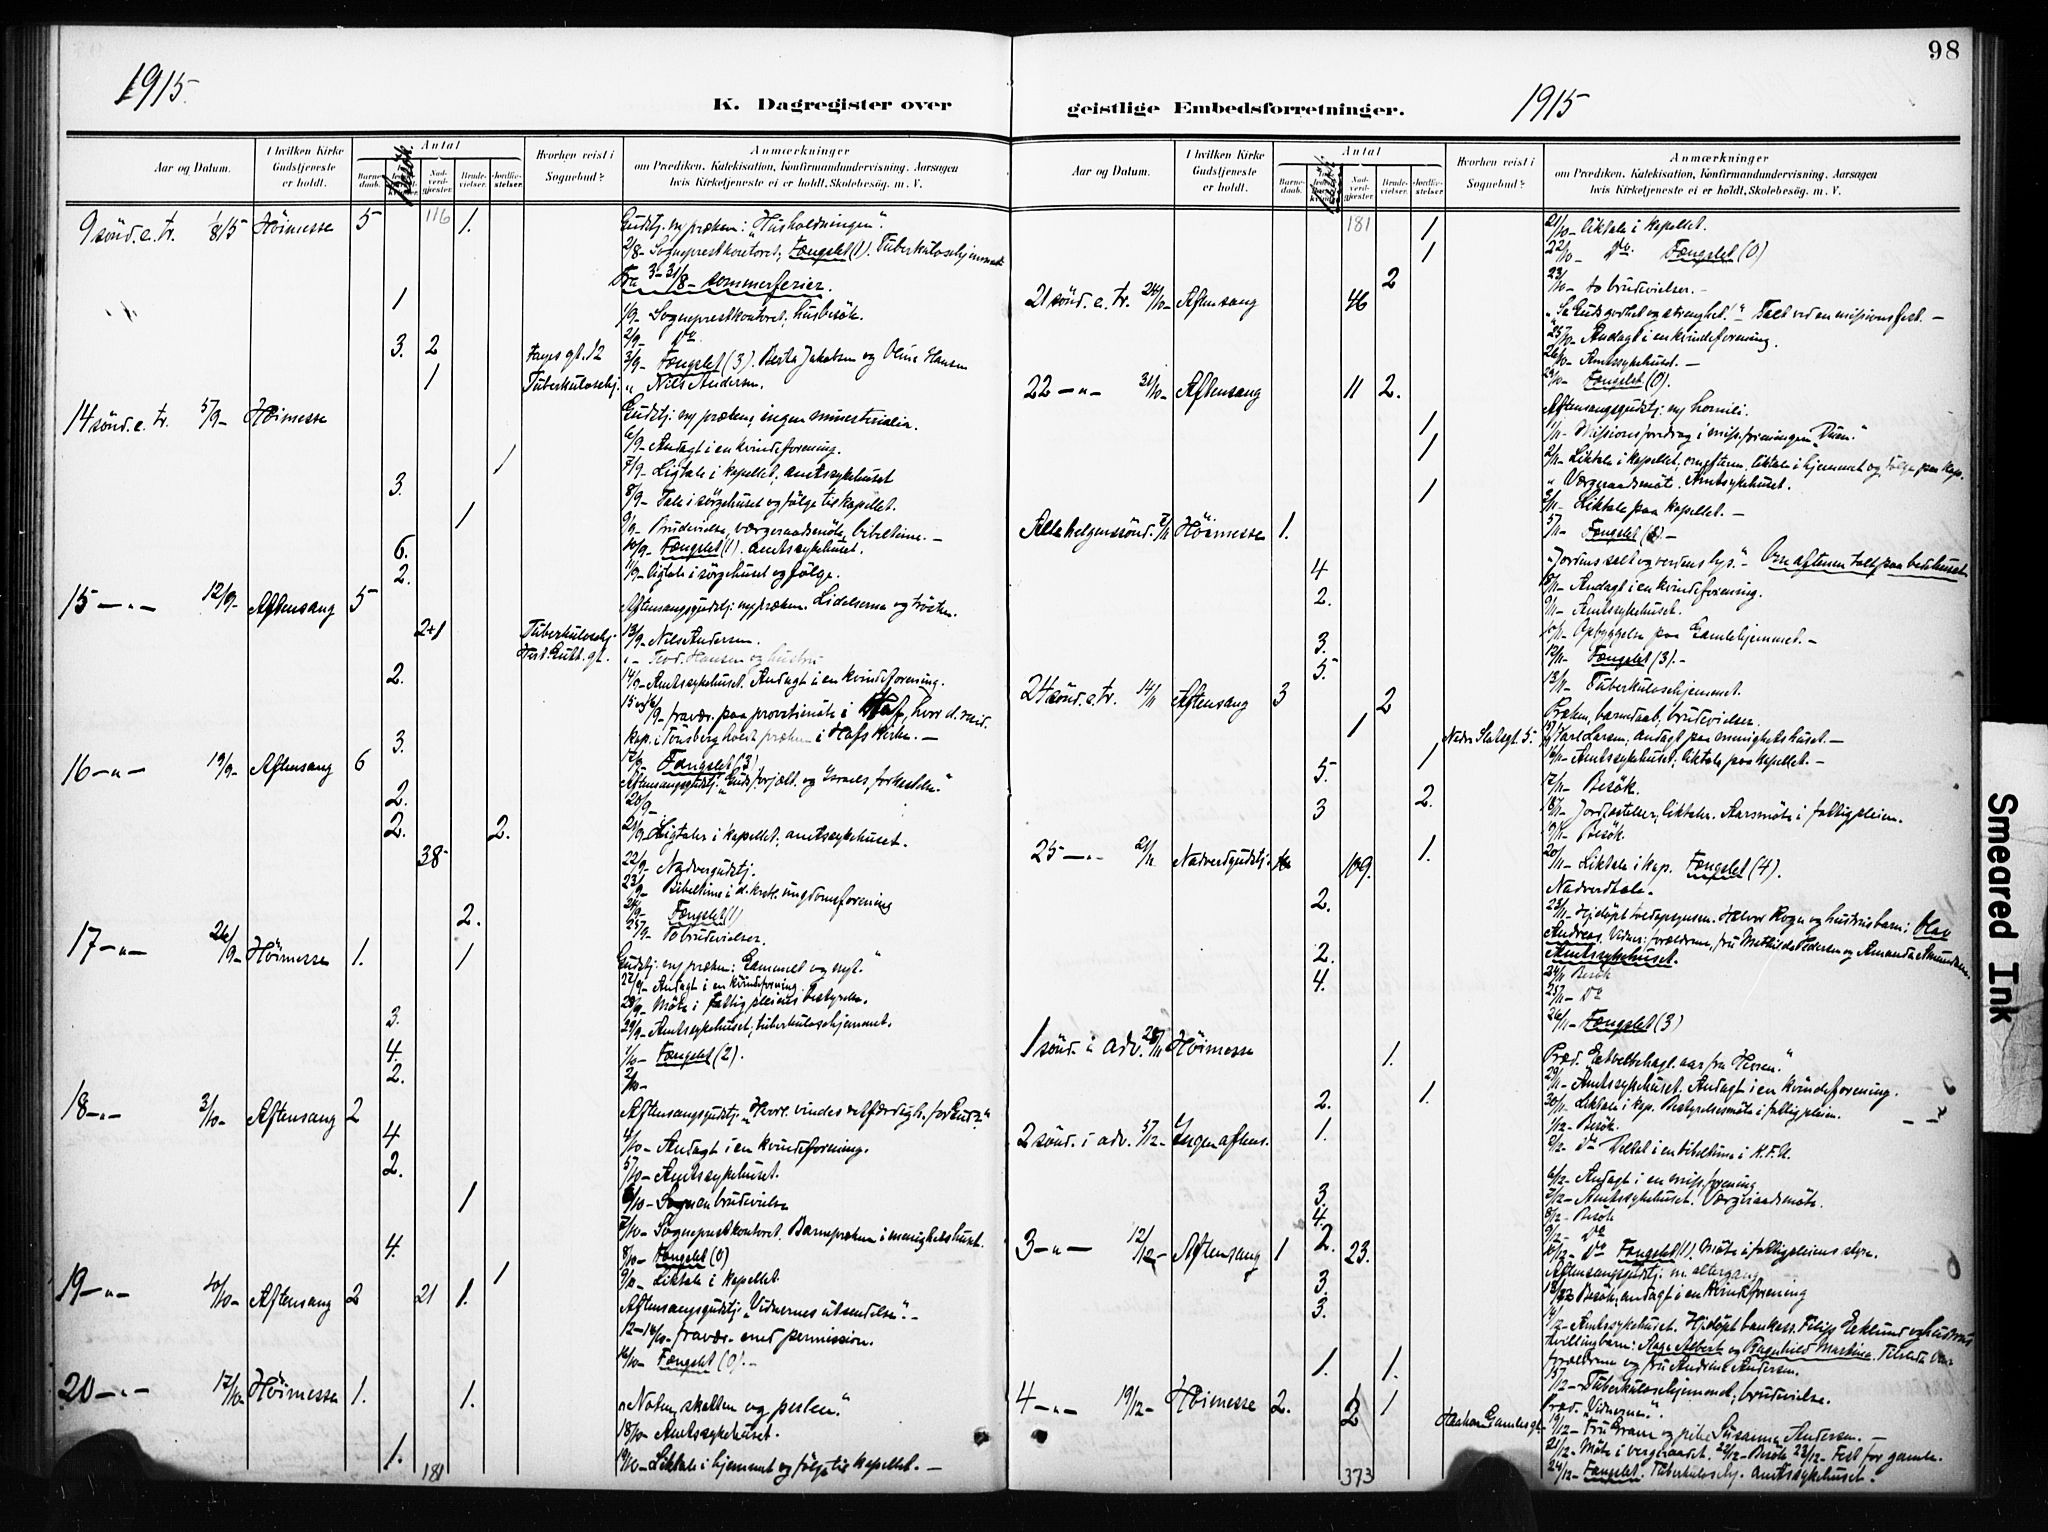 98
1915.
K. Dagregister over
geistlige Embedsforretninger.
1915
Aar og Datum.
I hvilken Kirke Gudstjeneste er holdt.
Antal
Barnedaab.
Besök.
Nadverdgjester
Brudevielser.
Jordfæstelser.
Hvorhen reist i Sognebud?
Anmærkninger
om Prædiken, Katekisation, Konfirmandundervisning, Aarsagen
hvis Kirketjeneste ei er holdt, Skolebesøg. m. V.
9 sönd. e. tr. 1/8 15 Höimesse 5 116 1. Gudstj. m præken: "Husholdningen".
2/8- Sogneprestkontoret, Fængslet (1). Tuberkulosehjemmet
Fra 3-31/8- sommerferier.
1 1/9- Sogneprestkontoret, husbesök.
2/9- Do
3. 2 Fayes gt. 12 3/9- Fængslet (3). Berta Jakobsen og Oline Hansen
1 Tuberkulosehj. " Nils Andersen.
14 sönd. e. tr. 5/9- Höimesse Gudstj. m præken, ingen ministerialia.
6/9- Andagt i en kvindeforening.
1 7/9- Ligtale i kapellet, amtssykehuset
3. 8/9- Tale i sörgehuset og fölge til kapellet.
1 9/9- Brudevielse, værgeraadsmöte, bibeltime. -
6. 10/9- Fængslet (1). amtssykehuset.
2. 11/9- Ligtale i sörgehuset og fölge.
15 -"- 12/9- Aftensang 5 Aftensangsgudstj. m præken. Lidelserne og trösten.
2+1 Tuberkulosehj. 13/9- Nils Andersen.
" - Teod. Hansen og hustru
2. 14/9- Amtssykehuset. Andagt i en kvindeforening.
15 og 16/9- fravær. paa provstimöte i Hof, hvor d. resid.
kap. i Tönsberg holdt præken i Hofs kirke. -
3. 17/9- Fængslet (3)
16 -"- 19/9- Aftensang 6 Aftensangsgudstj: "Guds forjætt. og Israels forkastelse"
2. 20/9-
2. 2. 21/9- Ligtaler i kapellet, amtssykehuset.
38 22/9- Nadvergudstj.
23/9- Bibeltime i d. kristl. ungdomsforening
24/9- Fængslet (1)
2. 25/9- To brudevielser.
17 -"- 26/9- Höimesse 1. 1 Gudstj. m præken: "Gammelt og nyt."
27/9- Andagt i en kvindeforening.
28/9- Möte i Fattigpleiens bestyrelse.
3. 29/9- Amtssykehuset, tuberkulosehjemmet.
4. 1/10- Fængslet (2).
2. 2/10-
18 -"- 3/10- Aftensang 2 Aftensangsgudstj: "Hvorl. vindes retfærdigh. for Gud?"
4 4/10- Andagt i en kvindeforening.
2. 5/10- Amtssykehuset.
1 6/10- en brudevielse
7/10- Sogneprestkontoret. Barnepræken i menighetshuset.
4. 8/10- Fængslet (0)
1 9/10- Liktale i kapellet.
19 -"- 10/10- Aftensang 2 21 1. Aftensangsgudstj: "Vidnernes utsendelse". -
12-14/10- fravær. med permission.
16/10- Fængslet (0). -
20 -"- 17/10- Höimesse 1. 1. "Noten, skatten og perlen."
18/10- Amtssykehuset.
1. 19/10- Liktale i hjemmet og fölge til kapellet. -
181
Aar og Datum.
I hvilken Kirke Gudstjeneste er holdt.
Antal
Barnedaab.
Nadverdgjester
Brudevielser.
Jordfæstelser.
Hvorhen reist i Sognebud?
Anmærkninger
om Prædiken, Katekisation, Konfirmandundervisning, Aarsagen
hvis Kirketjeneste ei er holdt, Skolebesøg. m. V.
181 1 21/10- Liktale i kapellet.
1 22/10- Do Fængslet (0)
2 23/10- to brudevielser. -
21 sönd. e. tr. 24/10- Aftensang 46 "Se Guds godhet og strenghet!" Talt ved en missionsfest. -
25/10- Andagt i en kvindeforening.
26/10- Amtssykehuset. -
29/10- Fængslet (0).
22 -"- 31/10- Aftensang 11 2. Aftensangsgudstj. m homili.
1 1/11- Missionsforedrag i miss.foreningen "Duen."
1 2/11- Liktale i kapellet, om efterm. liktale i hjemmet og fölge paa kap.
" Værgeraadsmöt. Amtssykehuset.
1 3/11- Liktale paa kapellet. -
5/11- Fængslet
Allehelgenssönd. 7/11 Höimesse 1. "Jordens salt og verdens lys". - Om aftenen talt paa bedehuset
4 8/11- Andagt i en kvindeforening.
2. 9/11- Amtssykehuset.
10/11- Opbyggelse paa Gamlehjemmet. -
3. 12/11- Fængslet (3). -
5. 13/11- Tuberkulosehjemmet.
24 sönd. e. tr. 14/11 Aftensang 3 2 Præken, barnedaab, brudevielser.
1 Nedre Slotsgt. 5. Karl Larsen, andagt paa menighetshuset. -
5. 1 16/11- Amtssykehuset, liktale paa kapellet. -
17/11- Besök.
3 2. 18/11- Jordfæstelser, liktaler. Aarsmöte i fattigpleien.
19/11- Besök.
1. 20/11- Liktale i kap. Fængslet (4).
25 -"- 21/11 Nadverdgudstj. 109. Nadverdtale.
2. 23/11- Hj.döpt Halvor Rogn og hustrus barn: Olav
Andreas. Vidner: forældrene, fru Mathilde Pedersen og Amanda Amundsen.
Amtssykehuset.
2. 24/11 Besök
4. 25/11- Do
26/11- Fængslet (3)
1 sönd. i adv. 28/11 Höimesse 1. Præd. "Et velbehagl. aar fra Herren".
29/11- Amtssykehuset. Andagt i en kvindeforening.
2. 1. 30/11- Liktale i kap. Bestyrelsesmöte i fattigpleien.
1. 1/12- Besök.
2 sönd. i adv. 5/12- Ingen aftens. 2/12- Do Deltat i en bibeltime i K.F.U.
6/12- Andagt i en miss.forening
3. 7/12- Amtssykehuset. Værgeraadsmöte.
4. 8/12- Besök
2. 9/12- Do
10/12- Do Fængslet (1). Möte i fattigpleiens styre.
3 -"- 12/12- Aftensang 1 23. Aftensangsgudstj. m. altergang
3. 13/12 Besök, andagt i en kvindeforening
3. 14/12- Amtssykehuset. Hj.döpt bankass. Filip Eeklund og hustrus
tvillingbarn: Aage Albert og Ragnhild Martine. Tilstede var
forældrene og fru Andrine Andersen.
1. 1. 15/12- Tuberkulosehjemmet, brudevielse.
4 -"- 19/12- Höimesse 2. 2 1 Præd. "Vidnernes".
Haakon Gamlesgt. 19/12- Fru Gram og pike Susanna Andersen. -
21/12- Möte i vergeraadet. 22/12- Besök 23/12- Fest for gamle.
373 24/12- Fængslet. Tuberkulosehj. amtssykehuset.
Smeared Ink